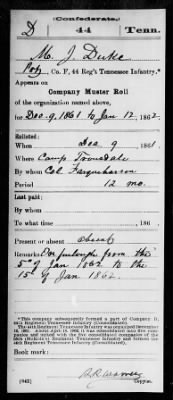 (Confederate.)
D 44 Tenn.
M. J. Duke
Pvt, Co. F, 44 Reg't Tennessee Infantry.*
Appears on
Company Muster Roll
of the organization named above,
for Dec. 9, 1861 to Jan 12, 1862.
Enlisted:
When Dec 9, 1861.
Where Camp Trousdale
By whom Col Farquharson
Period 12 mo.
Last paid:
By whom
To what time , 186 .
Present or absent Absent
Remarks: On furlough from the
5" of Jan 1862 to the
15" of Jan 1862.
*This company subsequently formed a part of Company D,
44th Regiment Tennessee Infantry (Consolidated).
Book mark:
(642) Copyist.